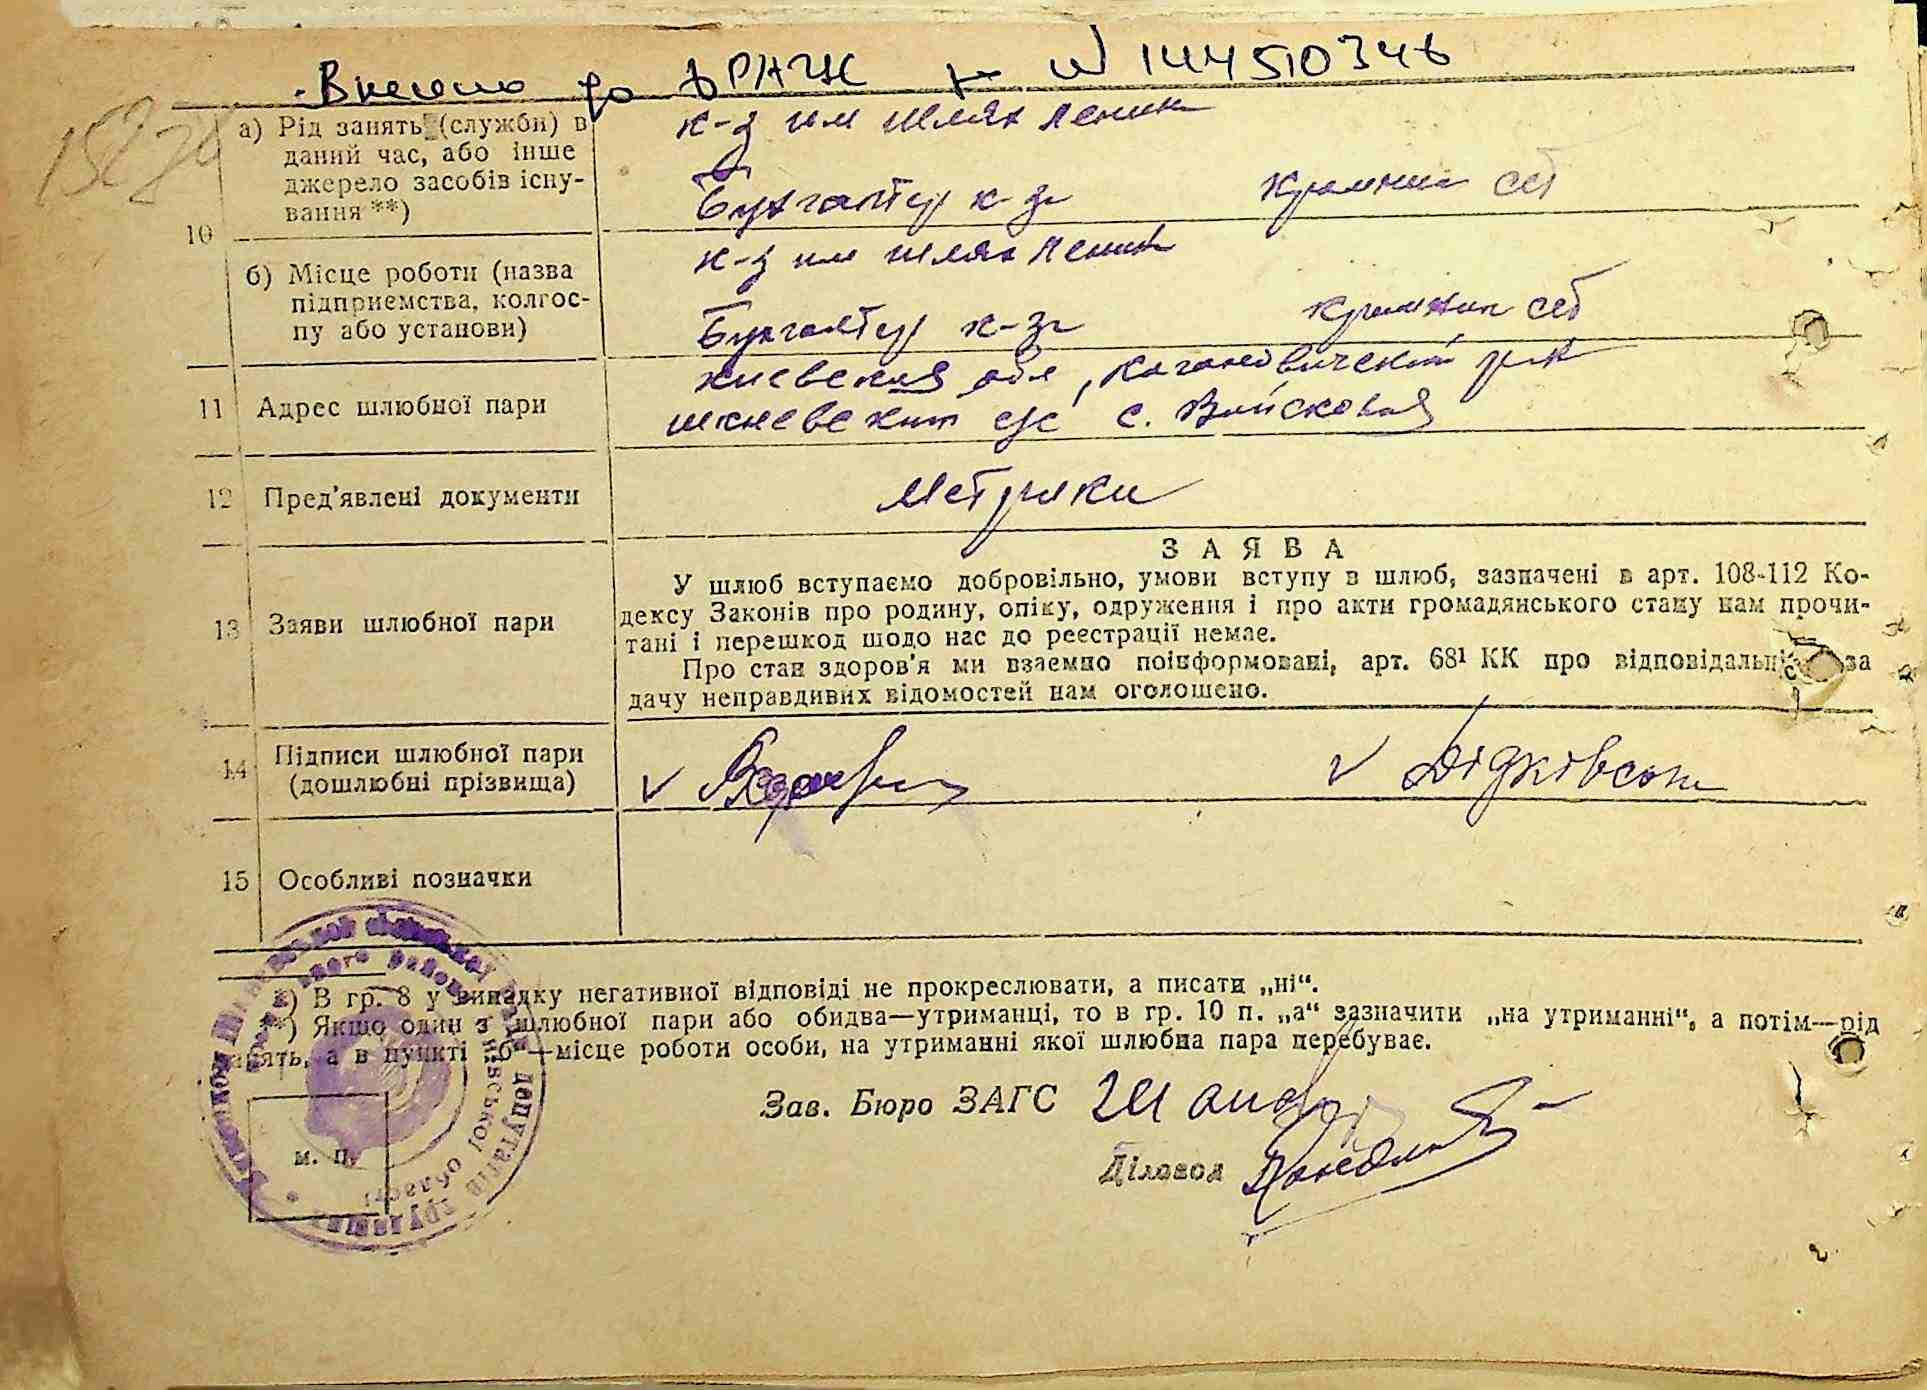 Внесено до ДРАЦС № 144510346
а) Рід занять (служби) в даний час, або інше джерело засобів існу-
вання **)
к-з им шлях Ленин
Бухгалтер к-за
10
б) Місце роботи (назва
підприємства, колгос-
пу або установи)
к-з им шлях Ленин
Бухгалтер к-за
11 Адрес шлюбної пари
Киевская обл, Кагановический р-н
с. Войсковая
12 Пред'явлені документи
Метрики
13 Заяви шлюбної пари
ЗАЯВА
У шлюб вступаємо добровільно, умови вступу в шлюб, зазначені в арт. 108-112 Ко-
дексу Законів про родину, опіку, одруження і про акти громадянського стану нам прочи-
тані і перешкод щодо нас до реєстрації немає.
Про стан здоров'я ми взаємно поінформовані, арт. 68¹ КК про за
дачу неправдивих відомостей нам оголошено.
14 Підписи шлюбної пари
(дошлюбні прізвища)
Дідківська
15 Особливі позначки
*) В гр. 8 у випадку негативної відповіді не прокреслювати, а писати „ні“.
**) Якщо один з шлюбної пари або обидва—утриманці, то в гр. 10 п. „а“ зазначити „на утриманні“, а потім—рід
занять, а в пункті „б“—місце роботи особи, на утриманні якої шлюбна пара перебуває.
Зав. Бюро ЗАГС
Діловод
м. п.